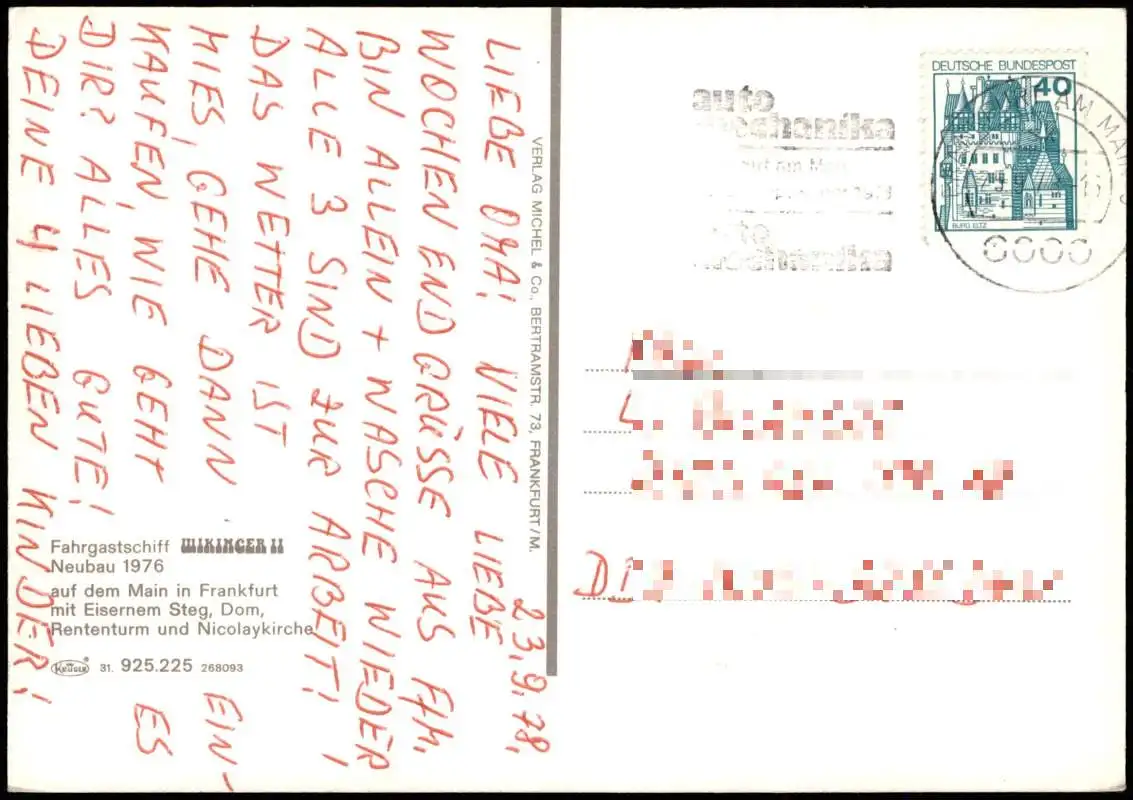 23.9.78.
LIEBE OMA! VIELE LIEBE
WOCHENENDGRÜSSE AUS FFM.
BIN ALLEIN + WASCHE WIEDER!
ALLE 3 SIND ZUR ARBEIT!
DAS WETTER IST
MIES, GEHE DANN EIN-
KAUFEN, WIE GEHT ES
DIR? ALLES GUTE!
DEINE 4 LIEBEN KINDER!
Fahrgastschiff WIKINGER II
Neubau 1976
auf dem Main in Frankfurt
mit Eisernem Steg, Dom,
Rententurm und Nicolaykirche
KRÜGER 31. 925.225 268093
VERLAG MICHEL & Co., BERTRAMSTR. 73, FRANKFURT/M.
auto
DEUTSCHE BUNDESPOST
40
BURG ELTZ
AM MAIN
6000